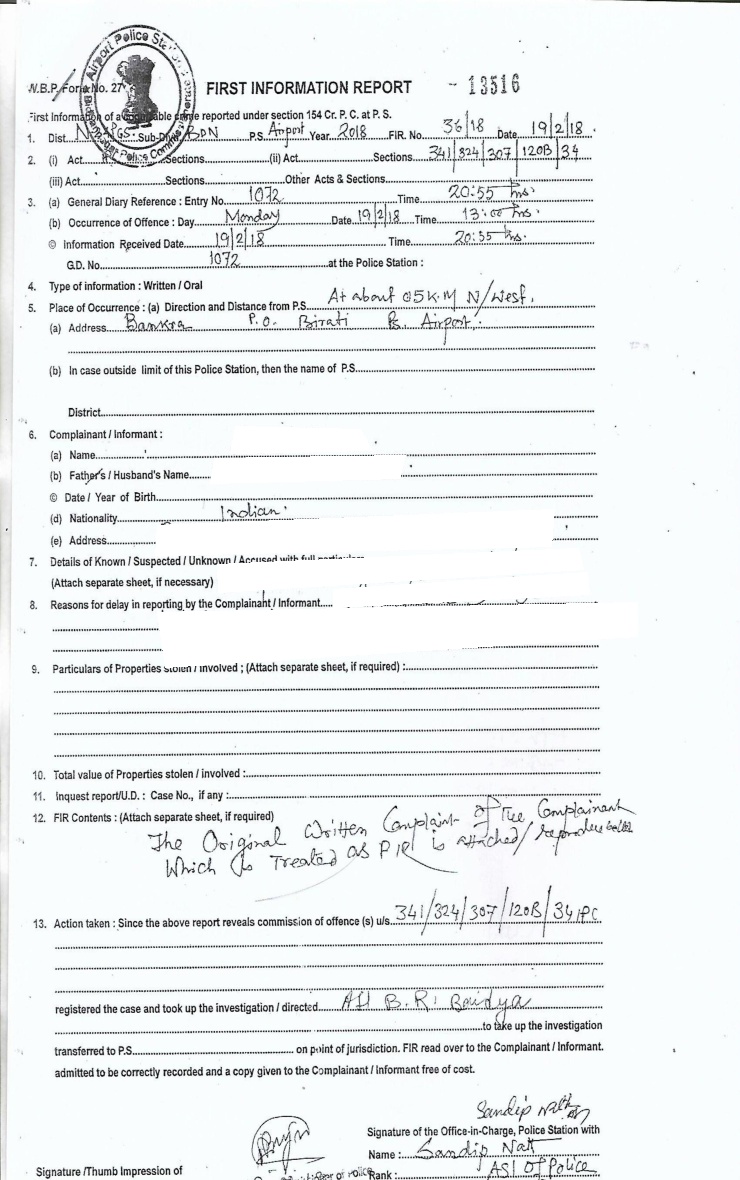 Airport Police Station
W.B.P. Form No. 27
FIRST INFORMATION REPORT - 13516
First Information of a cognizable crime reported under section 154 Cr. P. C. at P. S.
1. Dist. N. PGS. Sub-Divn BDN P.S. Airport Year 2018 FIR. No. 36/18 Date 19/2/18.
2. (i) Act Sections (ii) Act Sections 341/324/307/120B/34
(iii) Act Sections Other Acts & Sections
3. (a) General Diary Reference : Entry No. 1072 Time 20:55 hrs.
(b) Occurrence of Offence : Day Monday Date 19/2/18 Time 13:00 hrs.
© Information Received Date 19/2/18 Time 20:55 hrs.
G.D. No. 1072 at the Police Station :
4. Type of information : Written / Oral
5. Place of Occurrence : (a) Direction and Distance from P.S. At about 05 K.M N/West.
(a) Address Bankra P.O. Birati Ps. Airport.
(b) In case outside limit of this Police Station, then the name of P.S.
District
6. Complainant / Informant :
(a) Name
(b) Father's / Husband's Name
© Date / Year of Birth
(d) Nationality Indian.
(e) Address
7. Details of Known / Suspected / Unknown / Accused with full particulars
(Attach separate sheet, if necessary)
8. Reasons for delay in reporting by the Complainant / Informant
9. Particulars of Properties stolen / involved ; (Attach separate sheet, if required) :
10. Total value of Properties stolen / involved :
11. Inquest report/U.D. : Case No., if any :
12. FIR Contents : (Attach separate sheet, if required)
The Original Written Complaint of The Complainant
Which is Treated as FIR is attached/
13. Action taken : Since the above report reveals commission of offence (s) u/s. 341/324/307/120B/34 IPC
registered the case and took up the investigation / directed ASI B. R. Baidya
to take up the investigation
transferred to P.S. on point of jurisdiction. FIR read over to the Complainant / Informant.
admitted to be correctly recorded and a copy given to the Complainant / Informant free of cost.
Sandip Nath
Signature of the Office-in-Charge, Police Station with
Name : Sandip Nath
Signature /Thumb Impression of
Rank : ASI Of Police